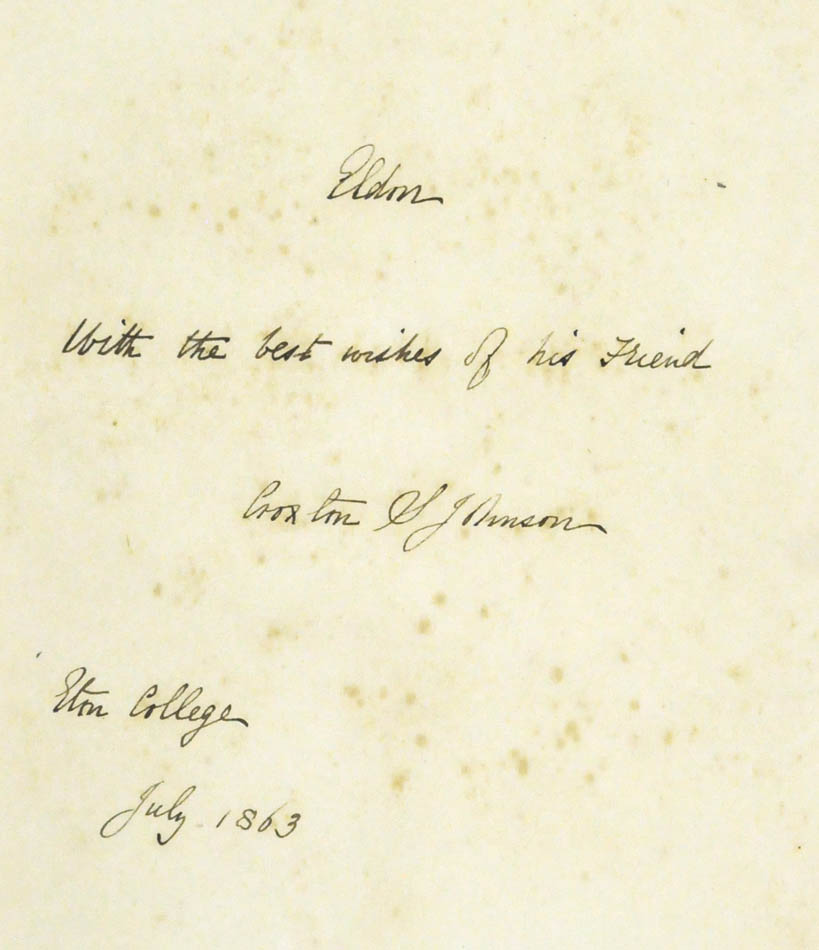 Eldon
With the best wishes of his Friend
Croxton S Johnson
Eton College
July 1863